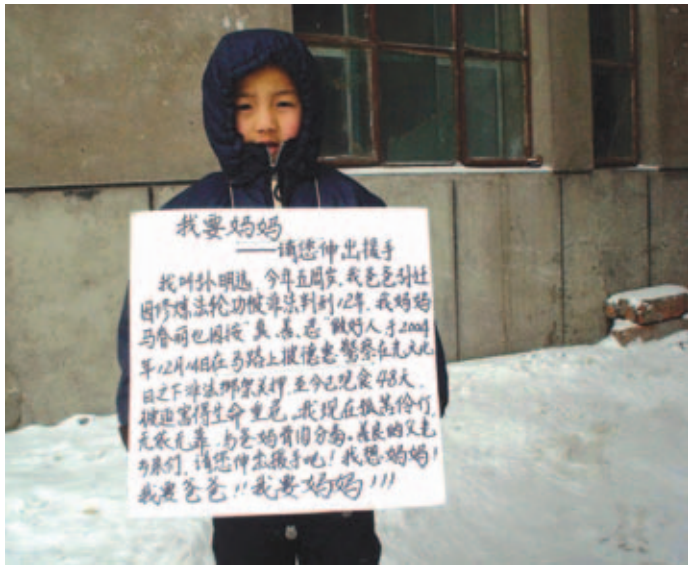 我要妈妈
——请您伸出援手
我叫孙明远，今年五周岁，我爸爸孙迁
因修炼法轮功被非法判刑12年，我妈妈
马春丽也因按“真、善、忍”做好人于2004
年12月14日在马路上被德惠警察在光天化
日之下非法绑架关押，至今已绝食48天，
被迫害得生命垂危，我现在孤苦伶仃，
无依无靠，与爸妈骨肉分离。善良的父老
乡亲们，请您伸出援手吧！我想妈妈！
我要爸爸！！我要妈妈！！！